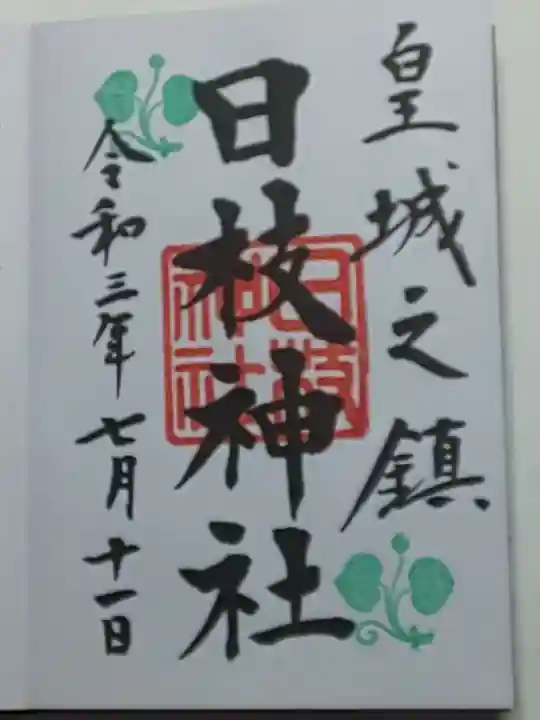 皇城之鎮
日枝神社
日枝神社
令和三年七月十一日